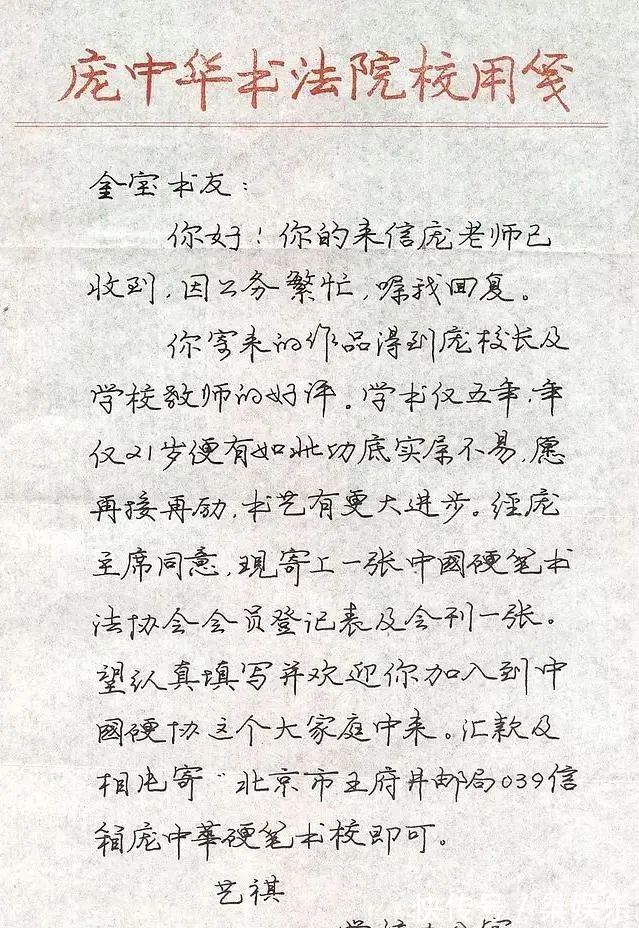 庞中华书法院校用笺
金宝书友：
你好！你的来信庞老师已
收到，因公务繁忙，嘱我回复。
你寄来的作品得到庞校长及
学校教师的好评。学书仅五年，年
仅21岁便有如此功底实属不易，愿
再接再励，书艺有更大进步。经庞
主席同意，现寄上一张中國硬笔书
法协会会员登记表及会刊一张。
望认真填写并欢迎你加入到中
國硬协这个大家庭中来。汇款及
相片寄“北京市王府井邮局039信
箱庞中華硬笔书校即可。
艺祺